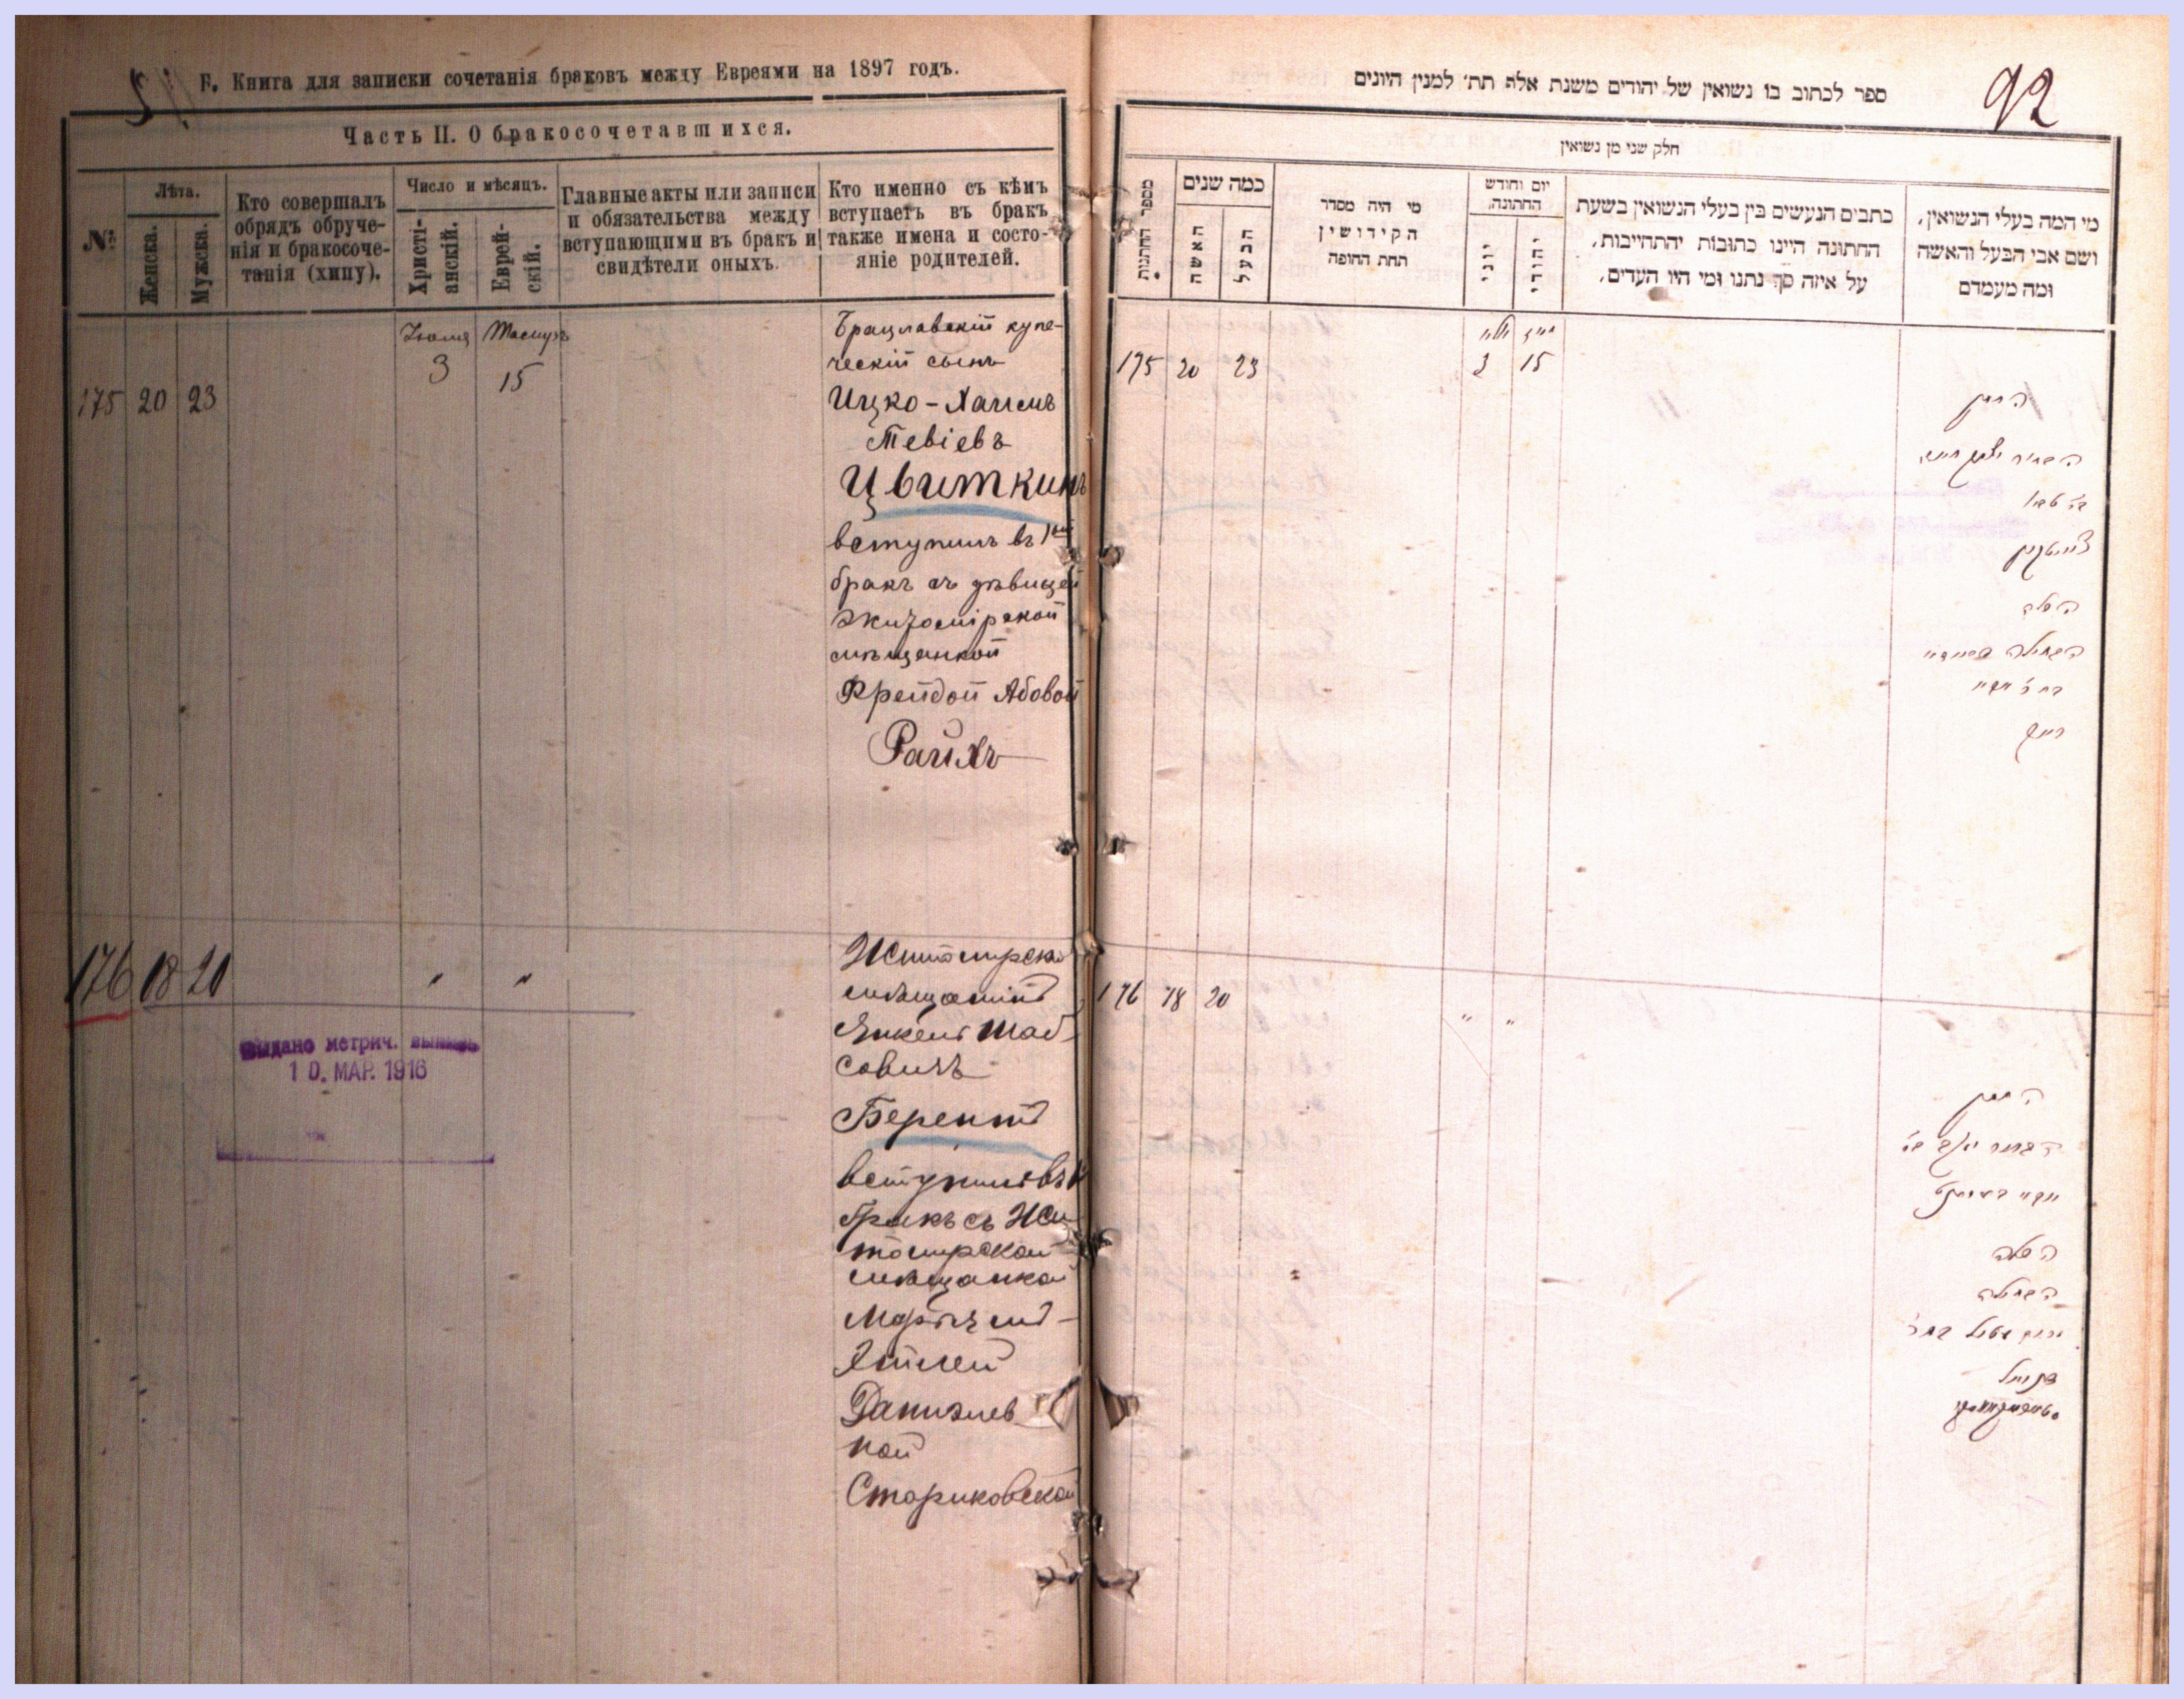 Б. Книга для записки сочетанія браковъ между Евреями на 1897 годъ.
Часть II. О бракосочетавшихся.
№
Лѣта.
Женска.
Мужска.
Кто совершалъ
обрядъ обруче-
нія и бракосоче-
танія (хипу).
Число и мѣсяцъ.
Христі-
анскій.
Еврей-
скій.
Главные акты или записи
и обязательства между
вступающими въ бракъ и
свидѣтели оныхъ.
Кто именно съ кѣмъ
вступаетъ въ бракъ
также имена и состо-
яніе родителей.
175 20 23
Іюля
3
Тамузъ
15
Брацлавскій купе-
ческій сынъ
Ицко-Хаимъ
Тевіевъ
Цвиткинъ
вступилъ въ 1ый
бракъ съ дѣвицей
Житомірской
мѣщанкой
Фрейдой Абовой
Райхъ
176 18 20
" "
выдано метрич. выпись
10. МАР. 1916
Житомирскій
мѣщанинъ
Янкель Шаб-
совичъ
Берентъ
вступилъ въ 1
бракъ съ Жи
томирской
мѣщанкой
Этлей
Даниэлев
ной
Стариковской
92
ספר לכתוב בו נשואין של יהודים משנת אלף תת׳ למנין היונים
חלק שני מן נשואין
מספר החתונות
כמה שנים
האשה
הבעל
מי היה מסדר
הקידושין
תחת החופה
יום וחודש
החתונה.
יוני
יהודי
כתבים הנעשים בין בעלי הנשואין בשעת
החתונה היינו כתובות יהתחייבות,
על איזה סך נתנו ומי היו העדים.
מי המה בעלי הנשואין,
ושם אבי הבעל והאשה
ומה מעמדם
175 20 23
3 15
החתן
צוויטקין
הכלה
רייך
176 18 20
" "
החתן
הכלה
הבתולה